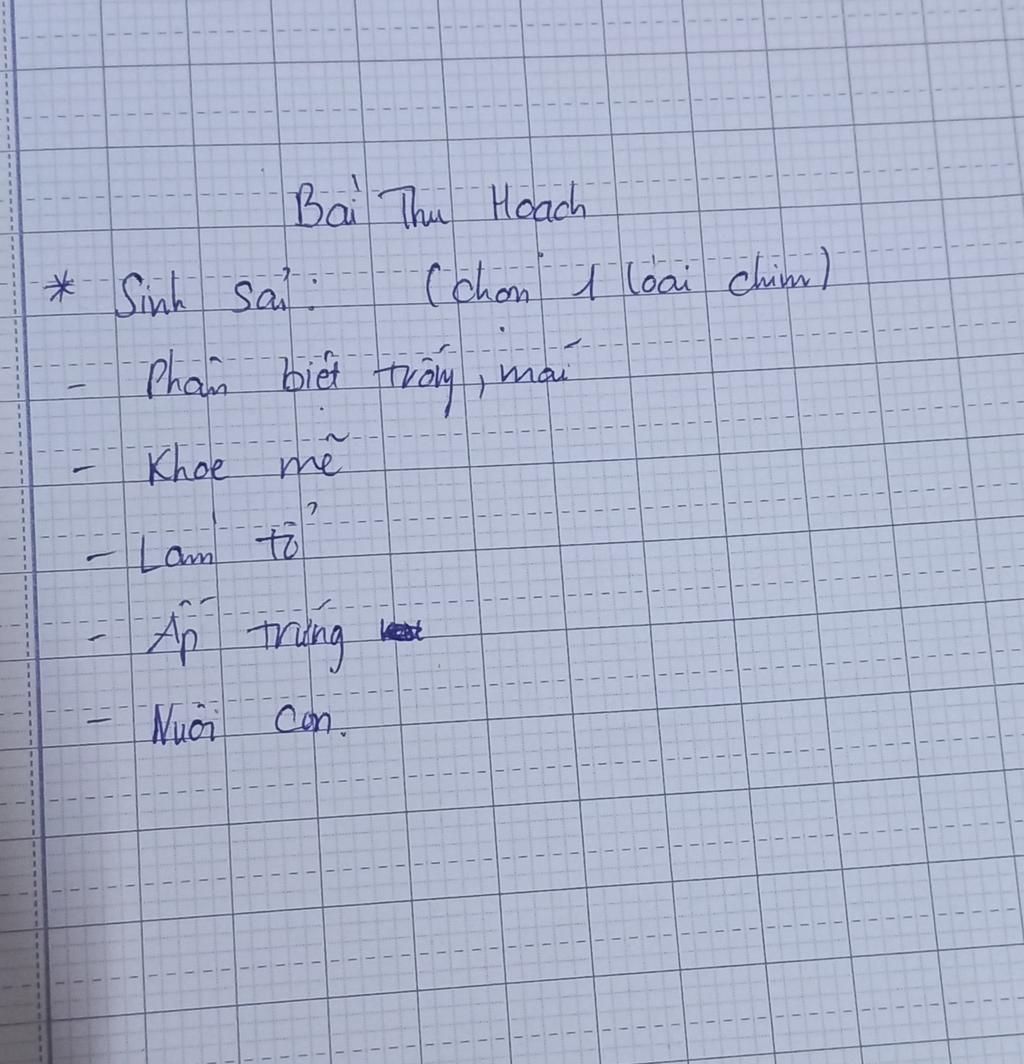 Bài Thu Hoạch
* Sinh sản: (chọn 1 loài chim)
- Phân biệt trống, mái
- Khoe mẽ
- Làm tổ
- Ấp trứng
- Nuôi con.